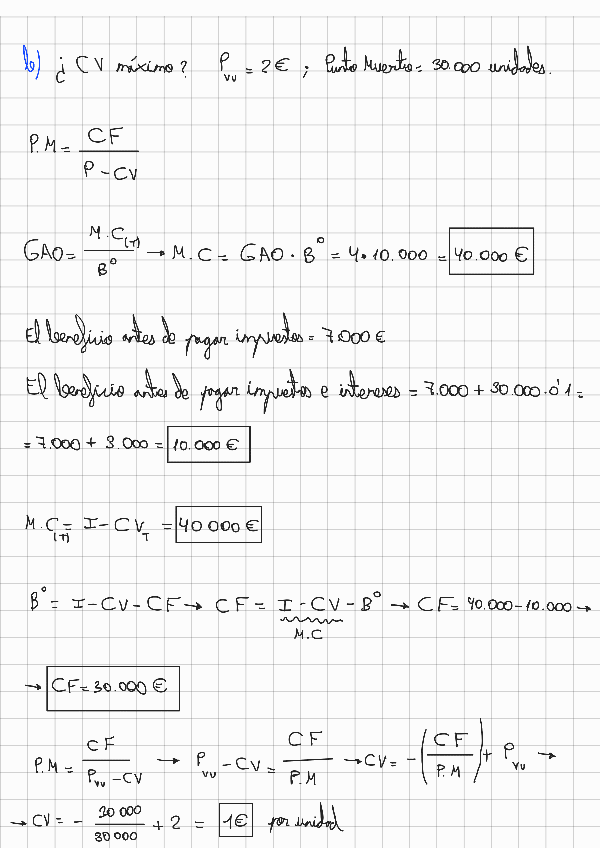 b) ¿ CV máximo? Pvu = 2€ ; Punto Muerto = 30.000 unidades.
P.M = CF / P - CV
GAO = M.C(T) / Bº → M.C = GAO · Bº = 4 · 10.000 = 40.000 €
El beneficio antes de pagar impuestos = 7.000 €
El beneficio antes de pagar impuestos e intereses = 7.000 + 30.000 · 0'1 =
= 7.000 + 3.000 = 10.000 €
M.C(T) = I - CVT = 40 000 €
Bº = I - CV - CF → CF = I - CV - Bº → CF = 40.000 - 10.000 →
M.C
→ CF = 30.000 €
P.M = CF / Pvu - CV → Pvu - CV = CF / P.M → CV = - ( CF / P.M ) + Pvu →
→ CV = - 30 000 / 30 000 + 2 = 1€ por unidad